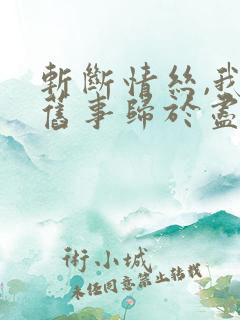 斬斷情絲,我
舊事歸於盡
術小城
未经同意禁止转载